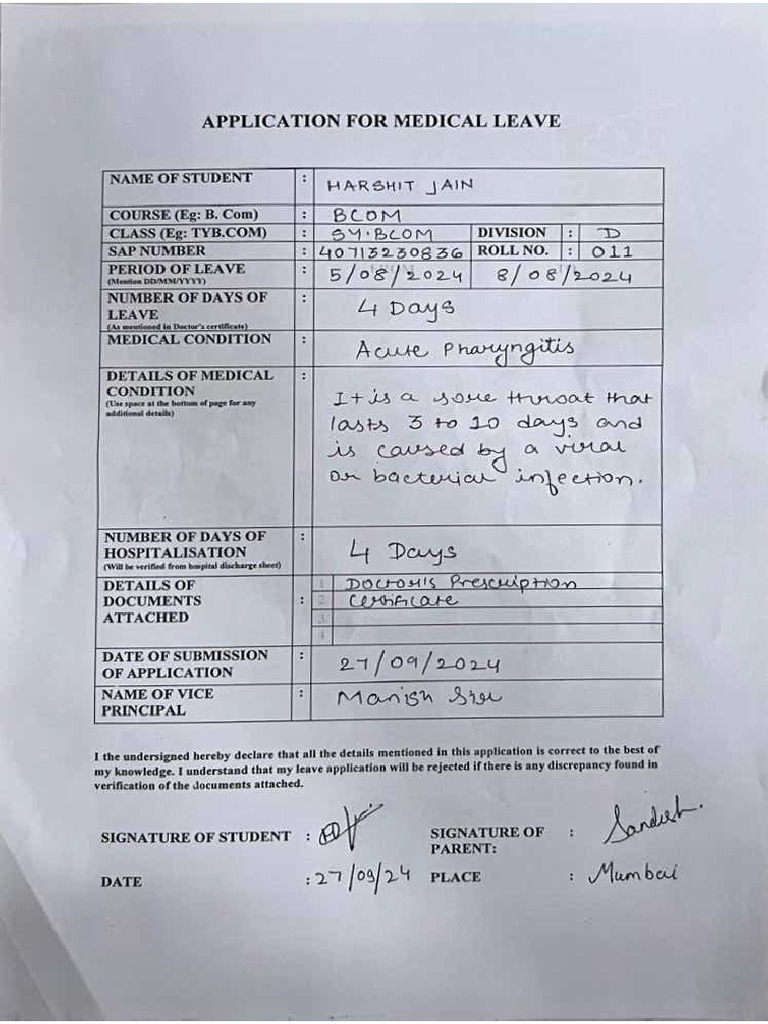 APPLICATION FOR MEDICAL LEAVE
NAME OF STUDENT : HARSHIT JAIN
COURSE (Eg: B. Com) : BCOM
CLASS (Eg: TYB.COM) : SY.BCOM DIVISION : D
SAP NUMBER : 40713230836 ROLL NO. : 011
PERIOD OF LEAVE : 5/08/2024 8/08/2024
(Mention DD/MM/YYYY)
NUMBER OF DAYS OF : 4 Days
LEAVE
(As mentioned in Doctor's certificate)
MEDICAL CONDITION : Acute Pharyngitis
DETAILS OF MEDICAL :
CONDITION
(Use space at the bottom of page for any
additional details)
It is a sore throat that
lasts 3 to 10 days and
is caused by a viral
or bacterial infection.
NUMBER OF DAYS OF : 4 Days
HOSPITALISATION
(Will be verified from hospital discharge sheet)
DETAILS OF 1 Doctor's Prescription
DOCUMENTS : 2 Certificate
ATTACHED 3
4
DATE OF SUBMISSION : 27/09/2024
OF APPLICATION
NAME OF VICE : Manish Sir
PRINCIPAL
I the undersigned hereby declare that all the details mentioned in this application is correct to the best of
my knowledge. I understand that my leave application will be rejected if there is any discrepancy found in
verification of the documents attached.
SIGNATURE OF STUDENT : SIGNATURE OF : Sandesh.
PARENT:
DATE : 27/09/24 PLACE : Mumbai